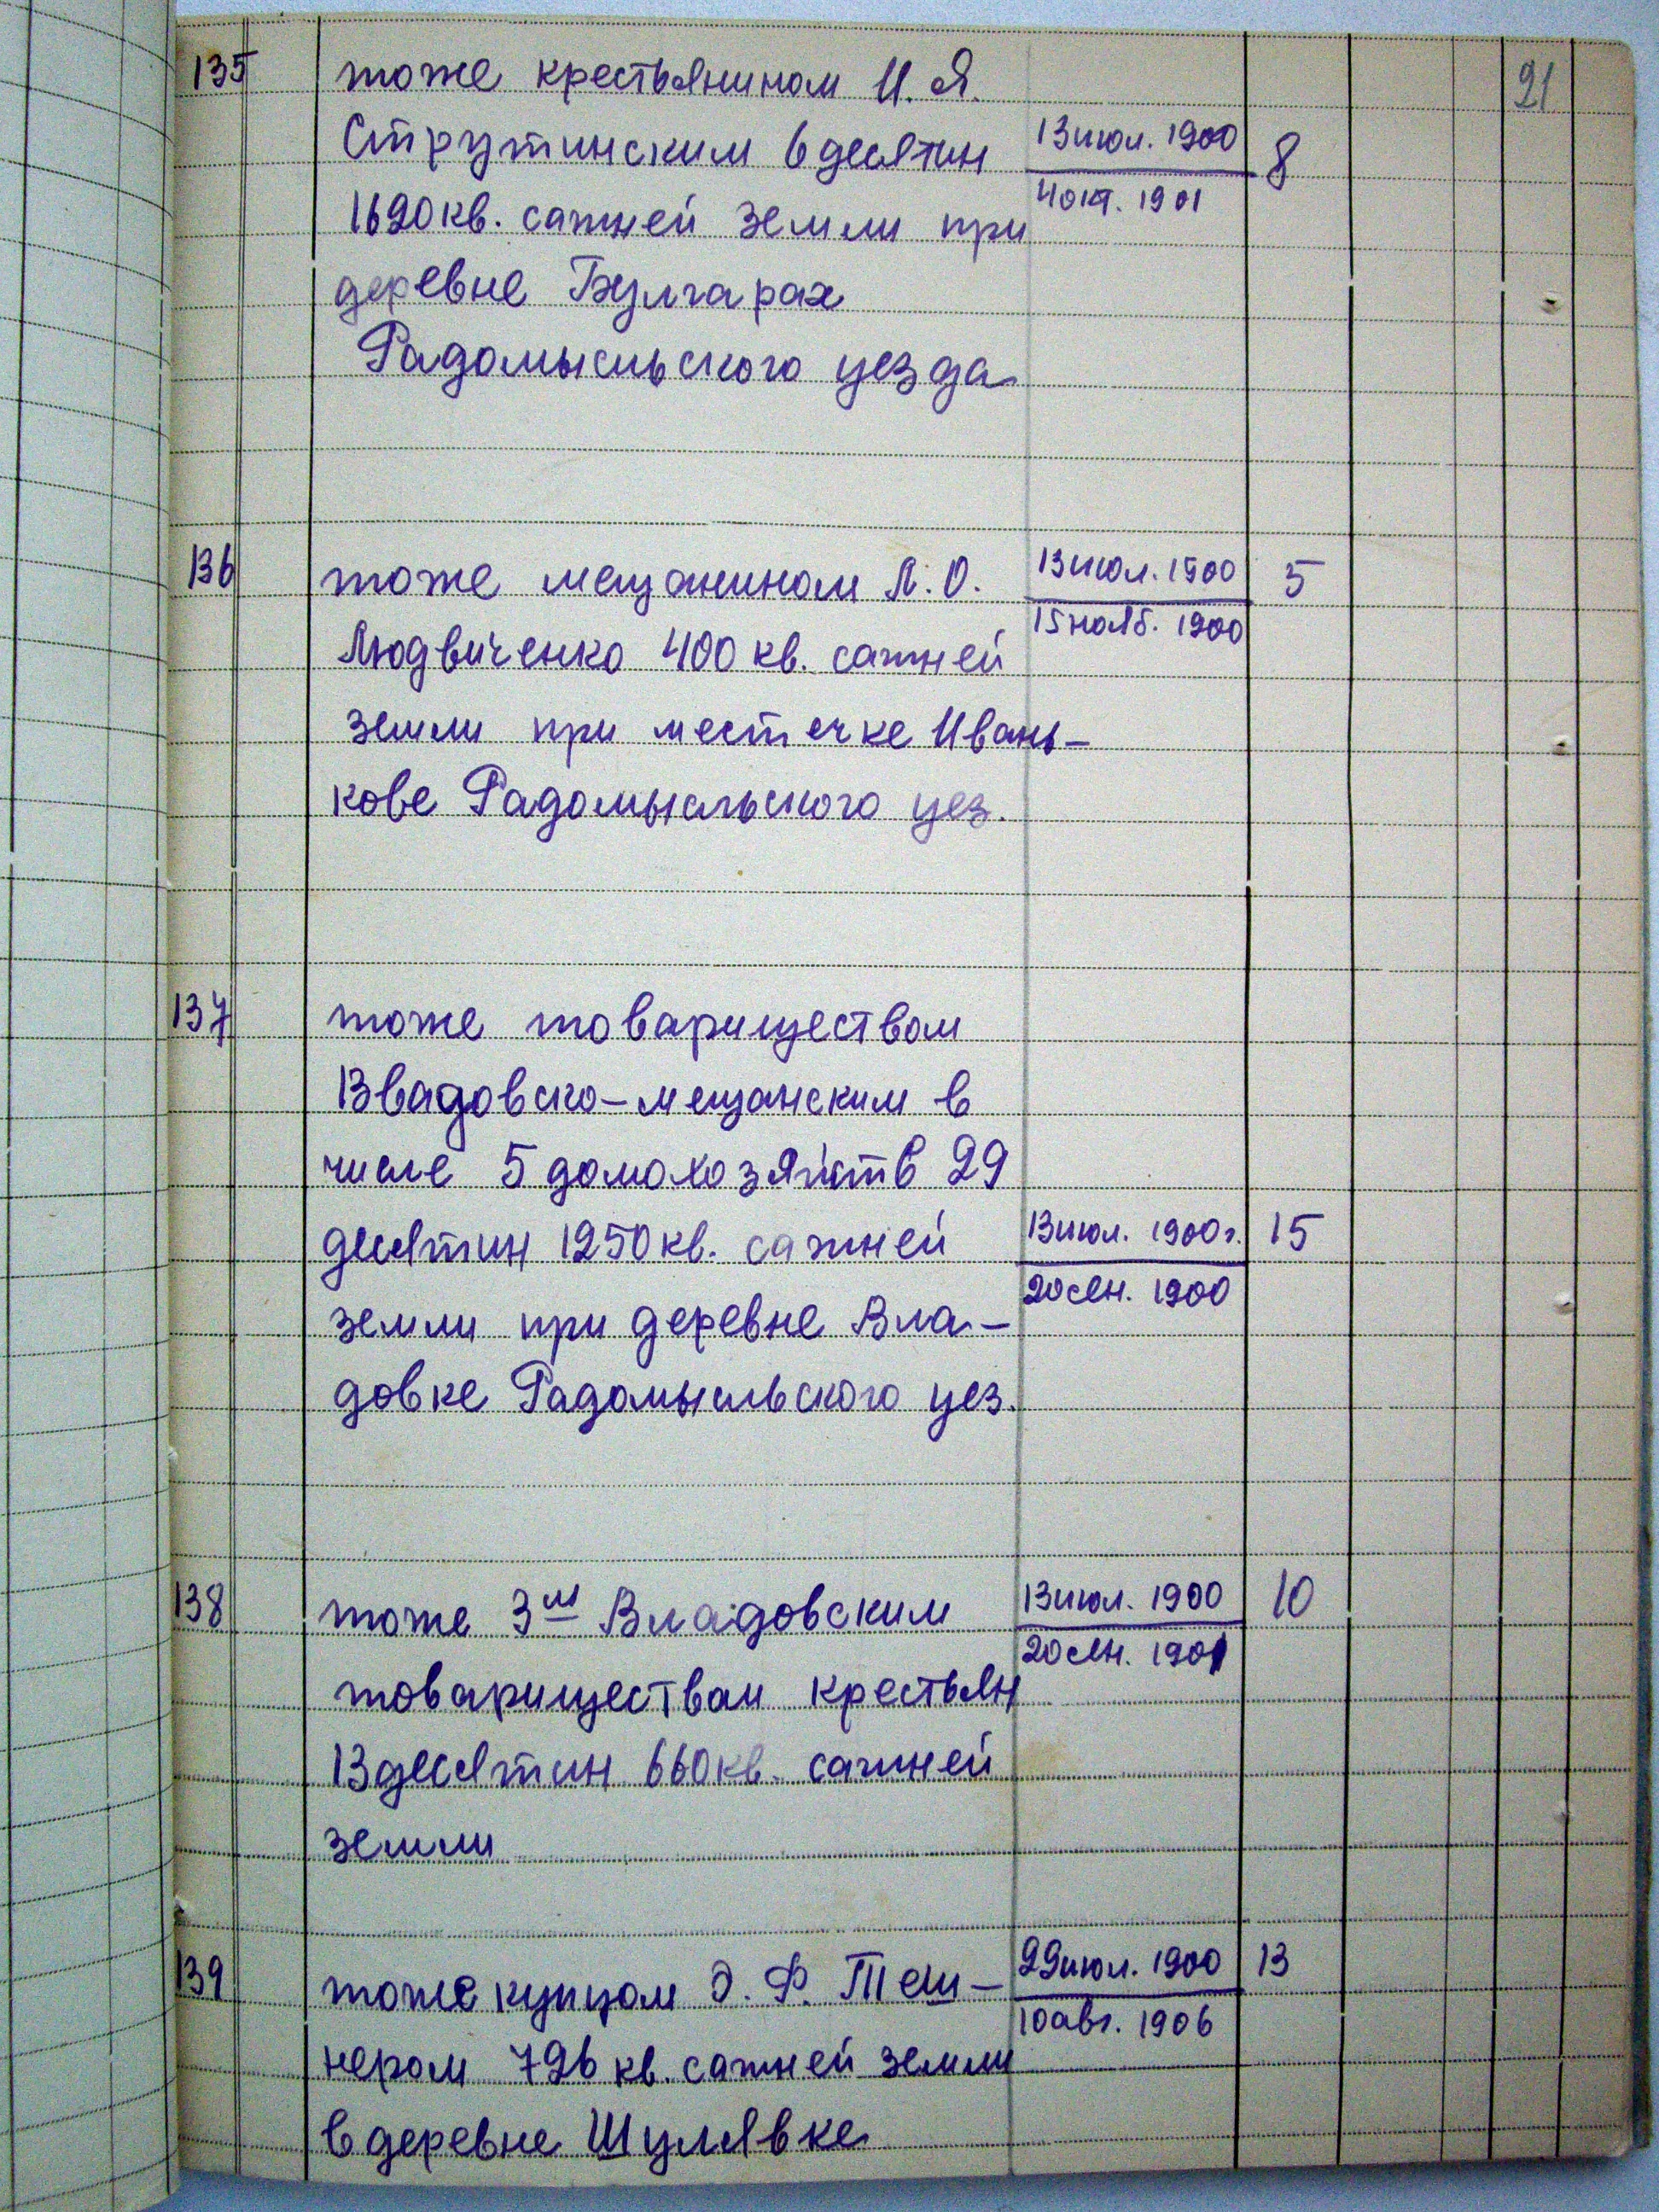 21
135 тоже крестьянином И. Я.
Струтинским 6 десятин 13 июл. 1900 8
1620 кв. сажней земли при 4 окт. 1901
деревне Булгарах
Радомысльского уезда
136 тоже мещанином Л. О. 13 июл. 1900 5
Людвиченко 400 кв. сажней 15 нояб. 1900
земли при местечке Ивань-
кове Радомысльского уез.
137 тоже товариществом
Введовско-мещанским в
числе 5 домохозяйств 29
десятин 1250 кв. сажней 13 июл. 1900 г. 15
земли при деревне Вла- 20 сен. 1900
довке Радомысльского уез.
138 тоже 3м Владовским 13 июл. 1900 10
товариществам крестьян 20 сен. 1901
13 десятин 660 кв. сажней
земли
139 тоже купцом Э. Ф. Теш- 29 июл. 1900 13
нером 726 кв. сажней земли 10 авг. 1906
в деревне Шулявке